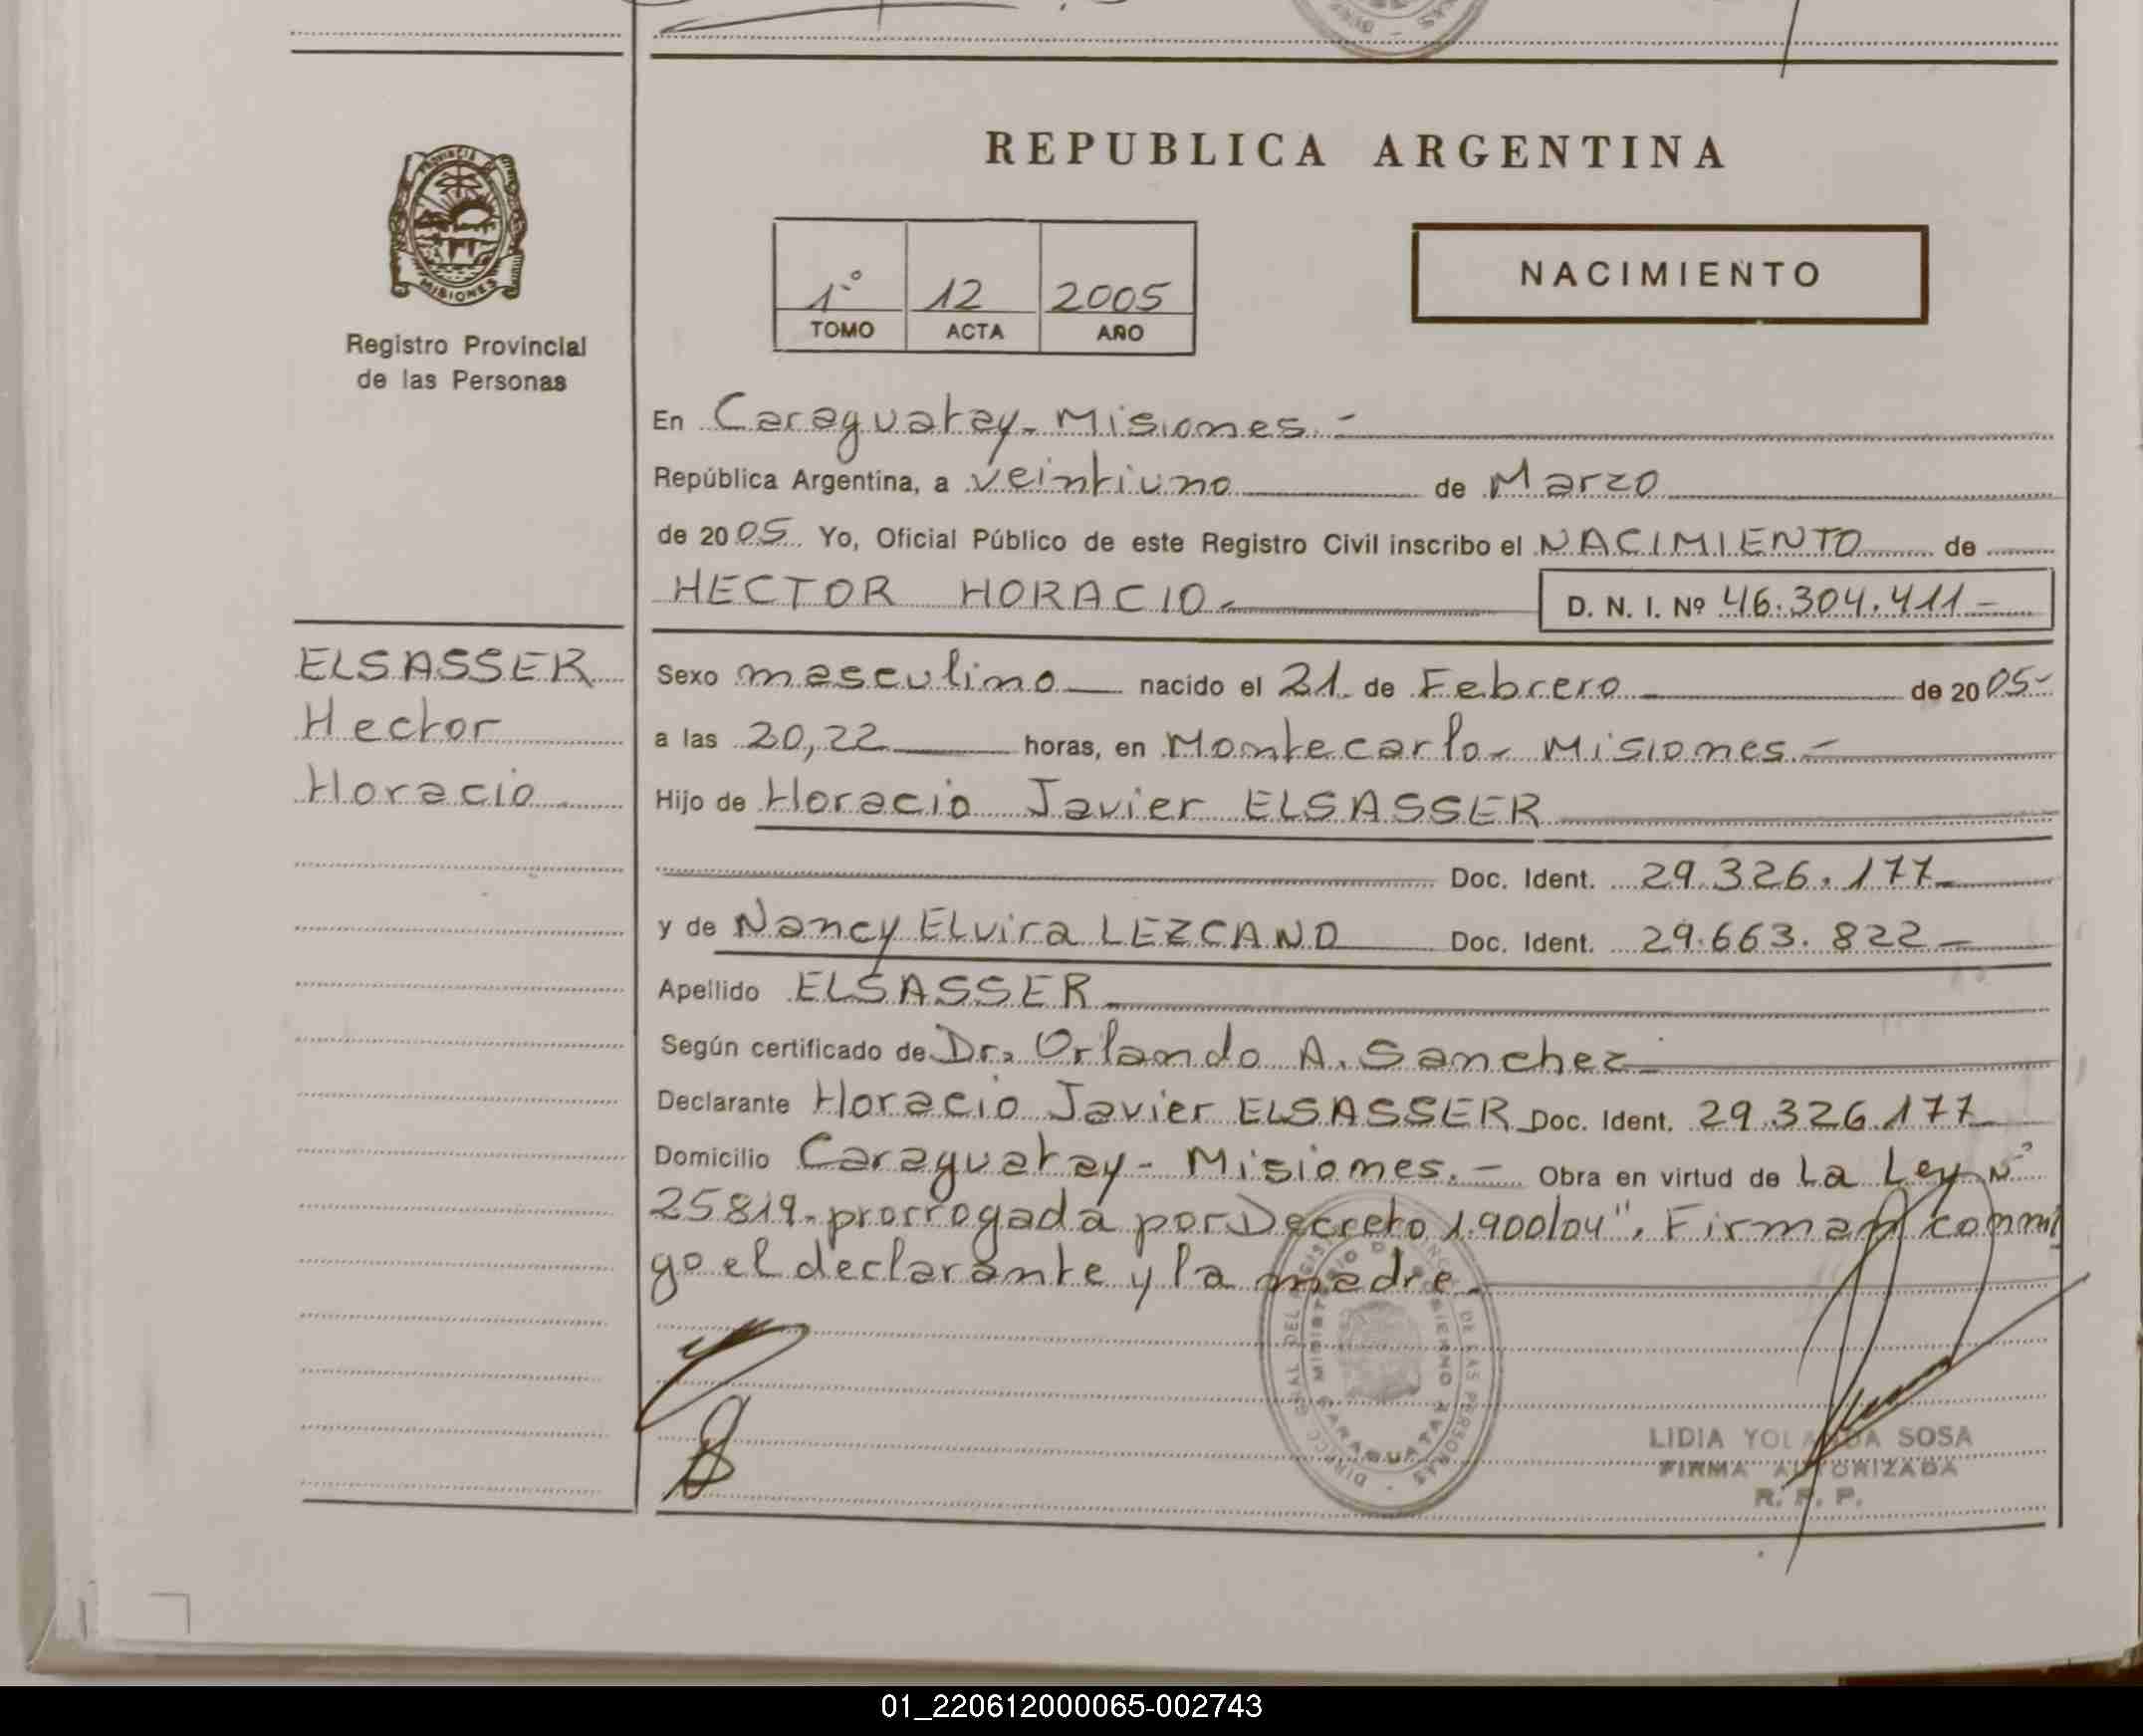 REPUBLICA ARGENTINA
PROVINCIA
MISIONES
Registro Provincial
de las Personas
1º 12 2005
TOMO ACTA AÑO
NACIMIENTO
En Caraguatay - Misiones.-
República Argentina, a veintiuno de Marzo
de 2005 Yo, Oficial Público de este Registro Civil inscribo el NACIMIENTO de
HECTOR HORACIO.- D. N. I. Nº 46.304.411-
ELSASSER
Hector
Horacio
Sexo masculino nacido el 21 de Febrero de 2005-
a las 20,22 horas, en Montecarlo - Misiones.-
Hijo de Horacio Javier ELSASSER
Doc. Ident. 29.326.177-
y de Nancy Elvira LEZCANO Doc. Ident. 29.663.822-
Apellido ELSASSER
Según certificado de Dr. Orlando A. Sanchez
Declarante Horacio Javier ELSASSER Doc. Ident. 29.326.177
Domicilio Caraguatay - Misiones.- Obra en virtud de La Ley Nº
25819- prorrogada por Decreto 1.900/04". Firman conmi
go el declarante y la madre.
DE LAS PERSONAS
CARAGUATAY
LIDIA YOLANDA SOSA
FIRMA AUTORIZADA
R. P. P.
01_220612000065-002743